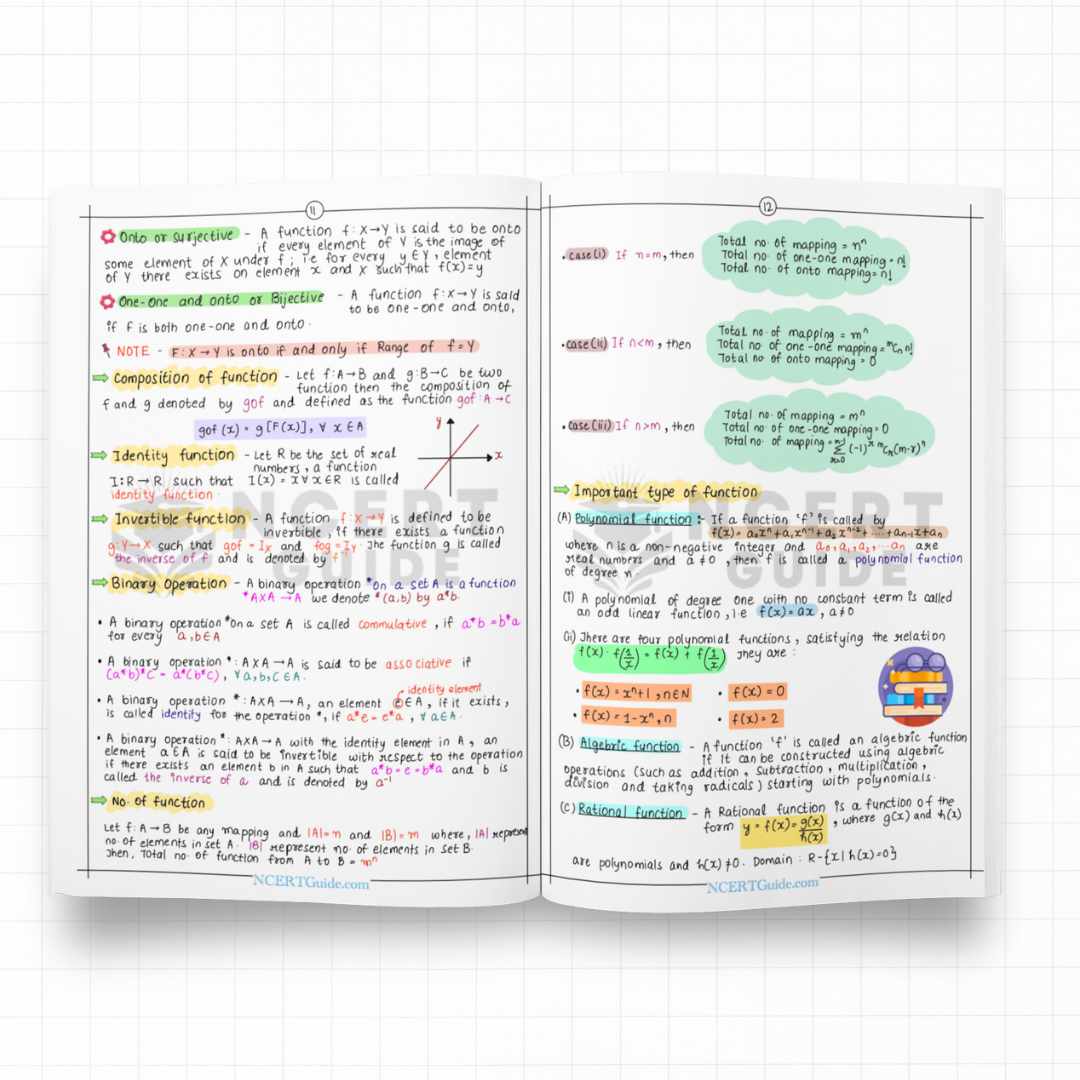 11
Onto or surjective - A function f: X→Y is said to be onto
if every element of Y is the image of
some element of X under f ; i.e for every y∈Y , element
of Y there exists on element x and X such that f(x)=y
One-One and onto or Bijective - A function f:X→Y is said
to be one-one and onto,
if F is both one-one and onto.
NOTE - F:X→Y is onto if and only if Range of f=Y
Composition of function - Let f:A→B and g:B→C be two
function then the composition of
f and g denoted by gof and defined as the function gof:A→C
gof (x) = g [F(x)], ∀ x∈A
y
x
Identity function - Let R be the set of real
numbers, a function
I:R→R such that I(x) = x∀x∈R is called
identity function.
Invertible function - A function f:X→Y is defined to be
invertible, if there exists a function
g:Y→X such that gof = Ix and fog=Iy. The function g is called
the inverse of f and is denoted by f
Binary Operation - A binary operation *on a set A is a function
*AXA→A we denote *(a,b) by a*b.
• A binary operation *on a set A is called commulative , if a*b =b*a
for every a,b∈A
• A binary operation *: AXA→A is said to be associative if
(a*b)*C = a*(b*c), ∀a,b,C∈A.
identity element
• A binary operation *: AXA→A, an element e∈A, if it exists,
is called identity for the operation *, if a*e=e*a , ∀ a∈A.
• A binary operation *: AXA→A with the identity element in A, an
element a∈A is said to be invertible with respect to the operation
if there exists an element b in A such that a*b=e=b*a and b is
called the inverse of a and is denoted by a⁻¹
No. of function
Let f:A→B be any mapping and |A|=n and |B|=m where, |A| represent
no. of elements in set A. |B| represent no. of elements in set B.
Then, Total no. of function from A to B = mⁿ
NCERTGuide.com
12
• case(i) If n=m, then
Total no. of mapping = nⁿ
Total no. of one-one mapping=n!
Total no. of onto mapping=n!
• case(ii) If n<m, then
Total no. of mapping = mⁿ
Total no of one-one mapping=ᵐCₙ n!
Total no of onto mapping = 0
• case(iii) If n>m, then
Total no. of mapping = mⁿ
Total no. of one-one mapping=0
Total no. of mapping = Σ (-1)ʳ ᵐCᵣ(m-r)ⁿ
Important type of function
(A) Polynomial function :- If a function 'f' is called by
f(x) = a₀xⁿ+a₁xⁿ⁻¹+a₂xⁿ⁻²+.....+aₙ-1x+aₙ
where n is a non-negative integer and a₀,a₁,a₂,...aₙ are
real numbers and a≠0 , then f is called a polynomial function
of degree n
(i) A polynomial of degree one with no constant term is called
an odd linear function, i.e f(x)= ax, a≠0
(ii) There are four polynomial functions, satisfying the relation
f(x). f(1/x) = f(x)+ f(1/x) They are :
• f(x)=xⁿ+1,n∈N • f(x)=0
• f(x)=1-xⁿ,n • f(x)=2
(B) Algebric function - A function 'f' is called an algebric function
if it can be constructed using algebric
operations (such as addition, Subtraction, multiplication,
division and taking radicals) starting with polynomials.
(C) Rational function - A Rational function is a function of the
form y = f(x)= g(x)/h(x) , where g(x) and h(x)
are polynomials and h(x)≠0. Domain : R-{x|h(x)=0}
NCERTGuide.com
NCERT
GUIDE
NCERT
GUIDE